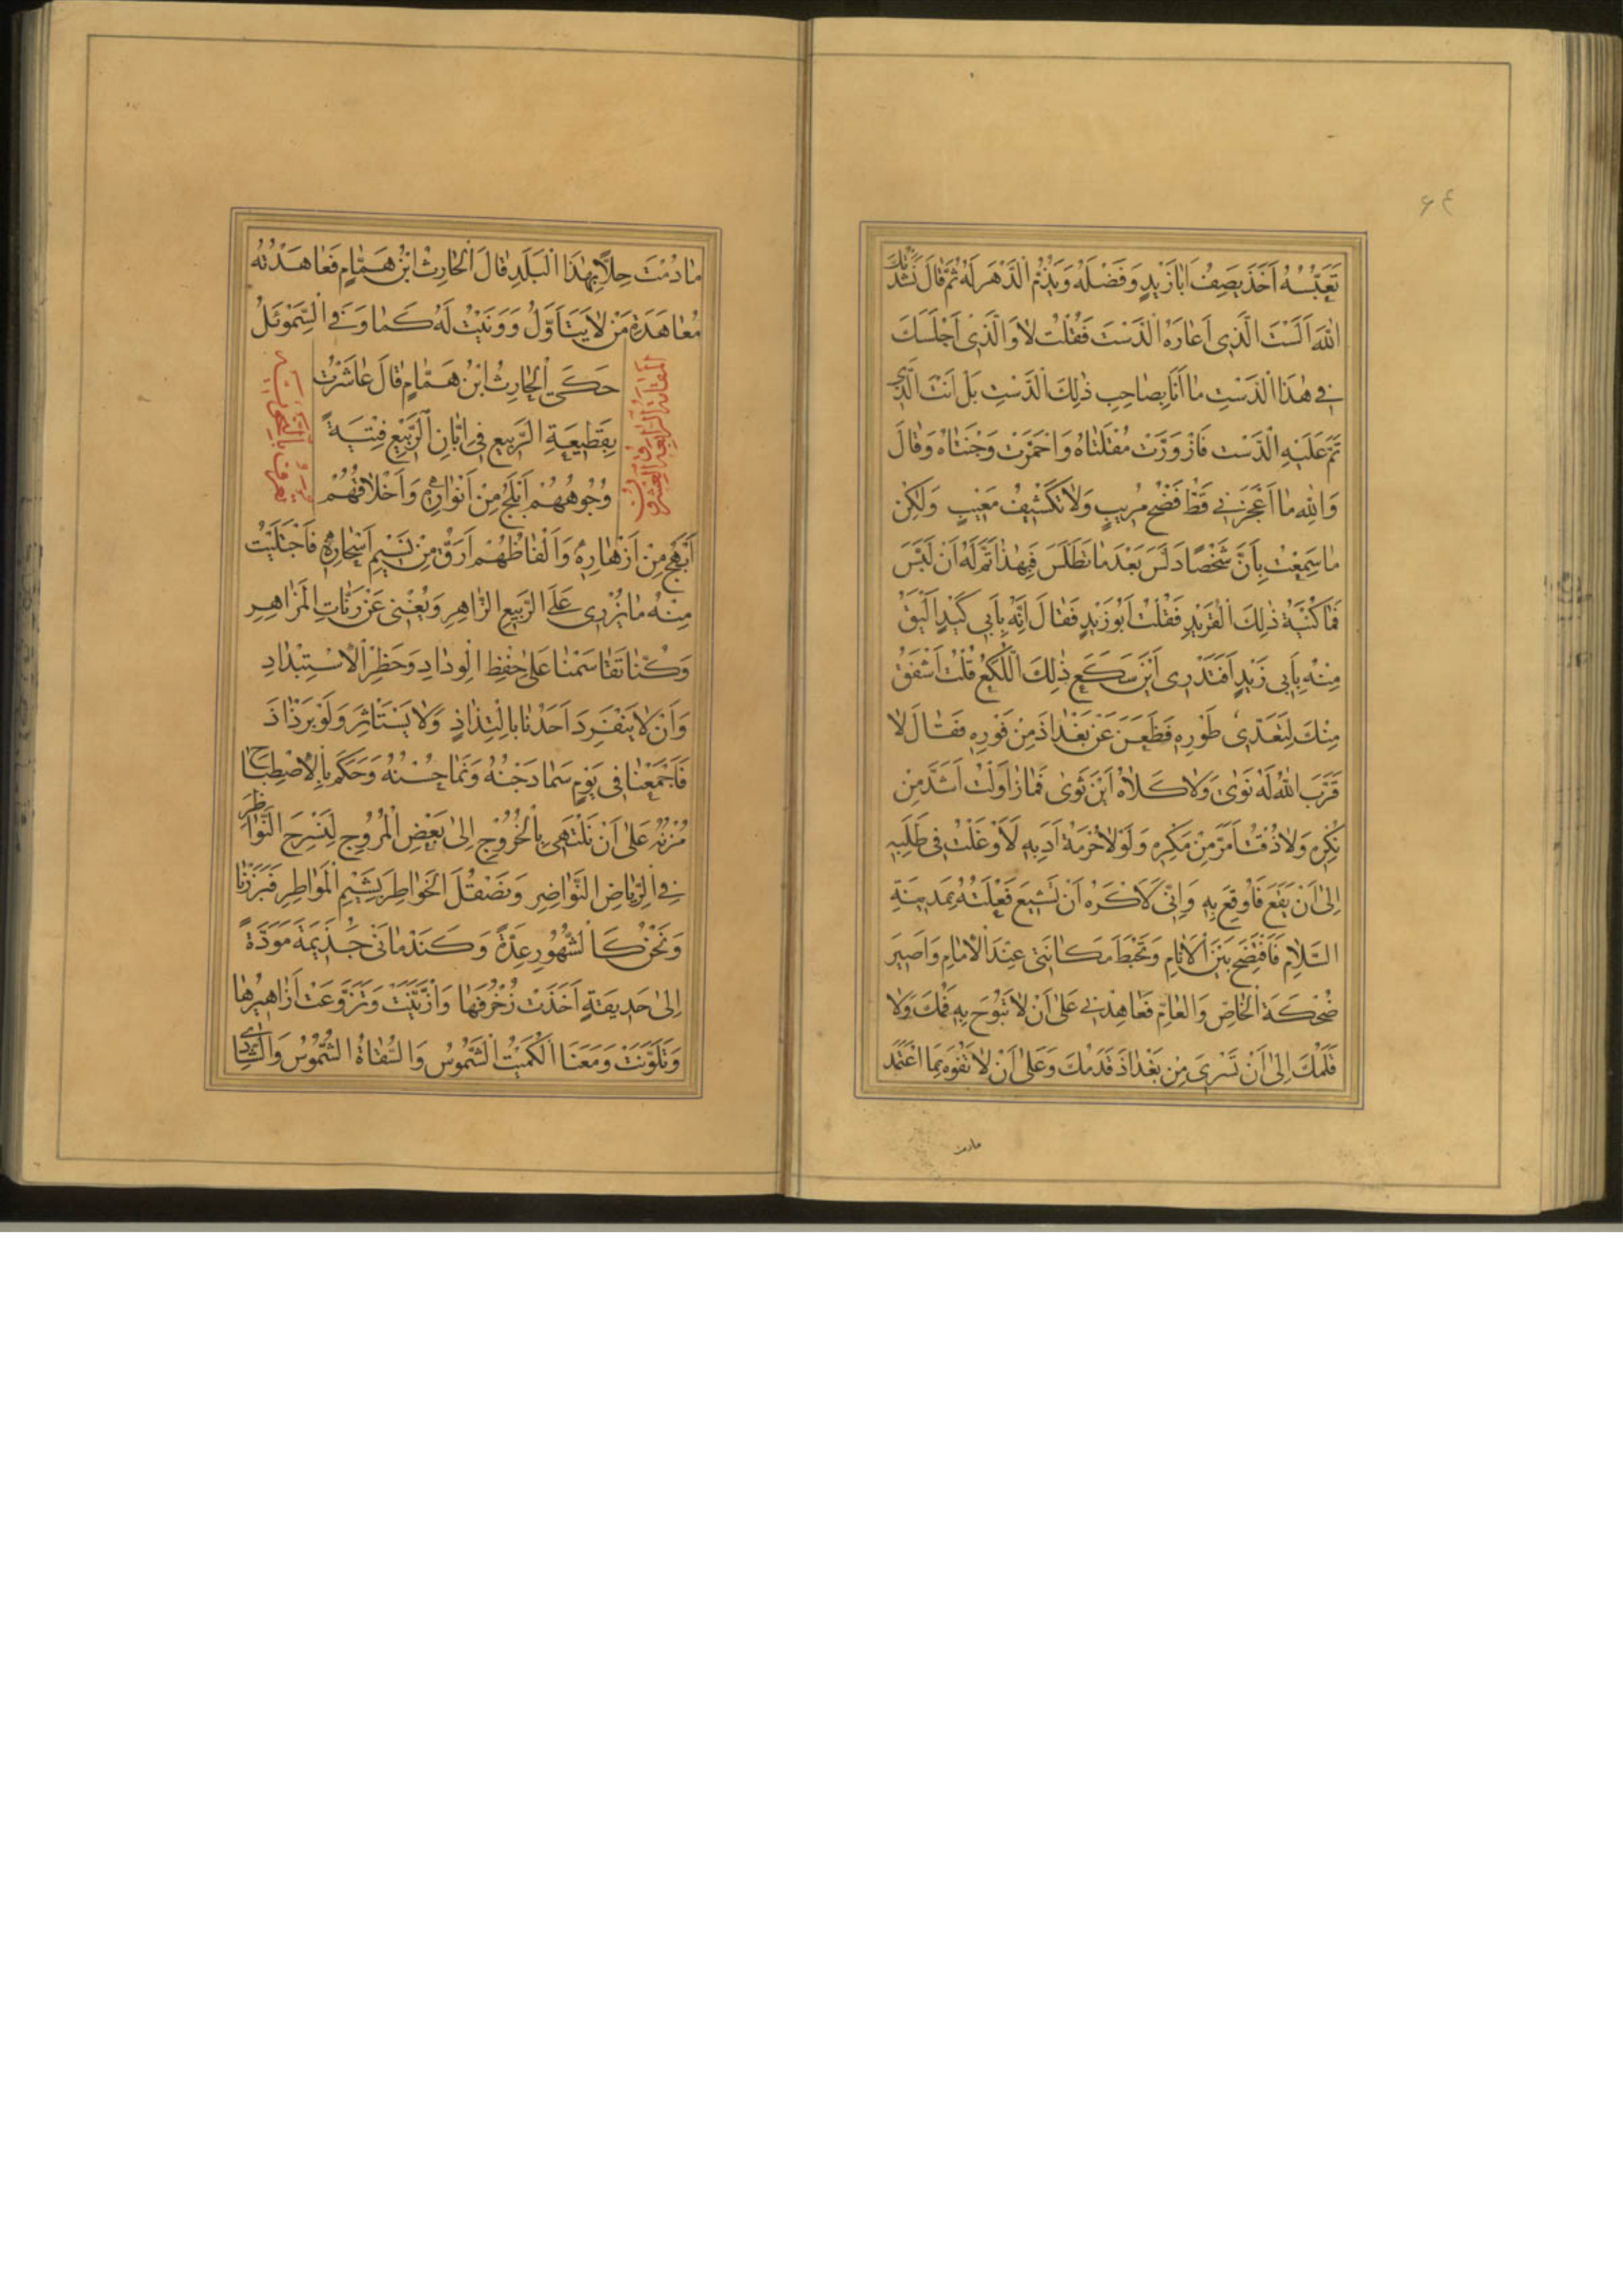 ۶۴
تَعَبُّسُهُ اَخَذَ يَصِفُ اَبَازَيْدٍ وَفَضْلَهُ وَيَذُمُّ الدَّهْرَ لَهُ ثُمَّ قَالَ نَشَدْتُكَ
اللهَ اَلَسْتَ الَّذِى اَعَارَهُ الدَّسْتَ فَقُلْتُ لَا وَالَّذِى اَجْلَسَكَ
فِي هٰذَا الدَّسْتِ مَا اَنَا بِصَاحِبِ ذٰلِكَ الدَّسْتِ بَلْ اَنْتَ الَّذِي
تَمَّ عَلَيْهِ الدَّسْت فَازْوَرَّتْ مُقْلَتَاهُ وَاحْمَرَّتْ وَجْنَتَاهُ وَقَالَ
وَاللهِ مَا اَعْجَزَنِي قَطُّ فَضْحُ مُرِيبٍ وَلَا تَكْشِيفُ مَعِيبٍ وَلٰكِنْ
مَا سَمِعْتُ بِاَنَّ شَخْصًا دَلَّسَ بَعْدَ مَا تَطَلَّسَ فَبِهٰذَا تَمَّ لَهُ اَنْ لَبَّسَ
فَمَا كُنْيَةُ ذٰلِكَ الْقِرِّيدِ فَقُلْتُ اَبُوزَيْدٍ فَقَالَ اِنَّهُ بِاَبِي كَيْدٍ اَلْيَقُ
مِنْهُ بِاَبِي زَيْدٍ اَفَتَدْرِى اَيْنَ سَكَعَ ذٰلِكَ اللُّكَعُ قُلْتُ اَشْفَقَ
مِنْكَ لِتَعَدِّى طَوْرِهِ فَظَعَنَ عَنْ بَغْدَاذَ مِنْ فَوْرِهِ فَقَالَ لَا
قَرَّبَ اللهُ لَهُ نَوًى وَلَا كَلَأَهُ اَيْنَ ثَوَى فَمَا زَاوَلْتُ اَشَدَّ مِنْ
نُكْرِهِ وَلَا ذُقْتُ اَمَرَّ مِنْ مَكْرِهِ وَلَوْلَا حُرْمَةُ اَدَبِهِ لَاَوْغَلْتُ فِى طَلَبِهِ
اِلَى اَنْ يَقَعَ فَاُوقِعَ بِهِ وَاِنِّى لَاَكْرَهُ اَنْ تَشِيعَ فَعْلَتُهُ بِمَدِينَةِ
السَّلَامِ فَاَفْتَضِحَ بَيْنَ الْاَنَامِ وَتَحْبَطَ مَكَانَتِى عِنْدَ الْاِمَامِ وَاَصِيرَ
ضُحْكَةَ الْخَاصِّ وَالْعَامِّ فَعَاهِدْنِي عَلَى اَنْ لَا تَبُوحَ بِهِ فَمُكَ وَلَا
قَلَمُكَ اِلَى اَنْ تَسْرِىَ مِنْ بَغْدَاذَ قَدَمُكَ وَعَلَى اَنْ لَا تَفُوهَ بِمَا اعْتَمَدَ
مادمت
مَا دُمْتَ حِلًّا بِهٰذَا الْبَلَدِ قَالَ الْحَارِثُ ابْنُ هَمَّامٍ فَعَاهَدْتُهُ
مُعَاهَدَةَ مَنْ لَا يَتَاَوَّلُ وَوَفَيْتُ لَهُ كَمَا وَفَى السَّمَوْئَلُ
المقامة الرابعة والعشرون
حَكَى الْحَارِثُ ابْنُ هَمَّامٍ قَالَ عَاشَرْتُ
بِقَطِيعَةِ الرَّبِيعِ فِى اِبَّانِ الرَّبِيعِ فِتْيَةً
وُجُوهُهُمْ اَبْلَجُ مِنْ اَنْوَارِهِ وَاَخْلَاقُهُمْ
اَبْهَجُ مِنْ اَزْهَارِهِ وَاَلْفَاظُهُمْ اَرَقُّ مِنْ نَسِيمِ اَسْحَارِهِ فَاجْتَلَيْتُ
مِنْهُ مَا يُزْرِى عَلَى الرَّبِيعِ الزَّاهِرِ وَيُغْنِى عَنْ رَنَّاتِ الْمَزَاهِرِ
وَكُنَّا تَقَاسَمْنَا عَلَى حِفْظِ الْوِدَادِ وَحَظْرِ الْاِسْتِبْدَادِ
وَاَنْ لَا يَنْفَرِدَ اَحَدُنَا بِالْتِذَاذٍ وَلَا يَسْتَاْثِرَ وَلَوْ بِرَذَاذَ
فَاَجْمَعْنَا فِى يَوْمٍ سَمَا دَجْنُهُ وَنَمَا حُسْنُهُ وَحَكَمَ بِالْاِصْطِبَاحِ
مُزْنُهُ عَلَى اَنْ نَلْتَهِىَ بِالْخُرُوْجِ اِلَى بَعْضِ الْمُرُوجِ لِنُسَرِّحَ النَّوَاظِرَ
فِي الرِّيَاضِ النَّوَاضِرِ وَنَصْقُلَ الْخَوَاطِرَ بِشَيْمِ الْمَوَاطِرِ فَبَرَزْنَا
وَنَحْنُ كَالشُّهُورِ عِدَّةً وَكَنَدْمَانَىْ جَذِيمَةَ مَوَدَّةً
اِلَى حَدِيقَةٍ اَخَذَتْ زُخْرُفَهَا وَازَّيَّنَتْ وَتَنَوَّعَتْ اَزَاهِيرُهَا
وَتَلَوَّنَتْ وَمَعَنَا الْكُمَيْتُ الشَّمُوسُ وَالسُّقَاةُ الشُّمُوسُ وَالشَّادِي